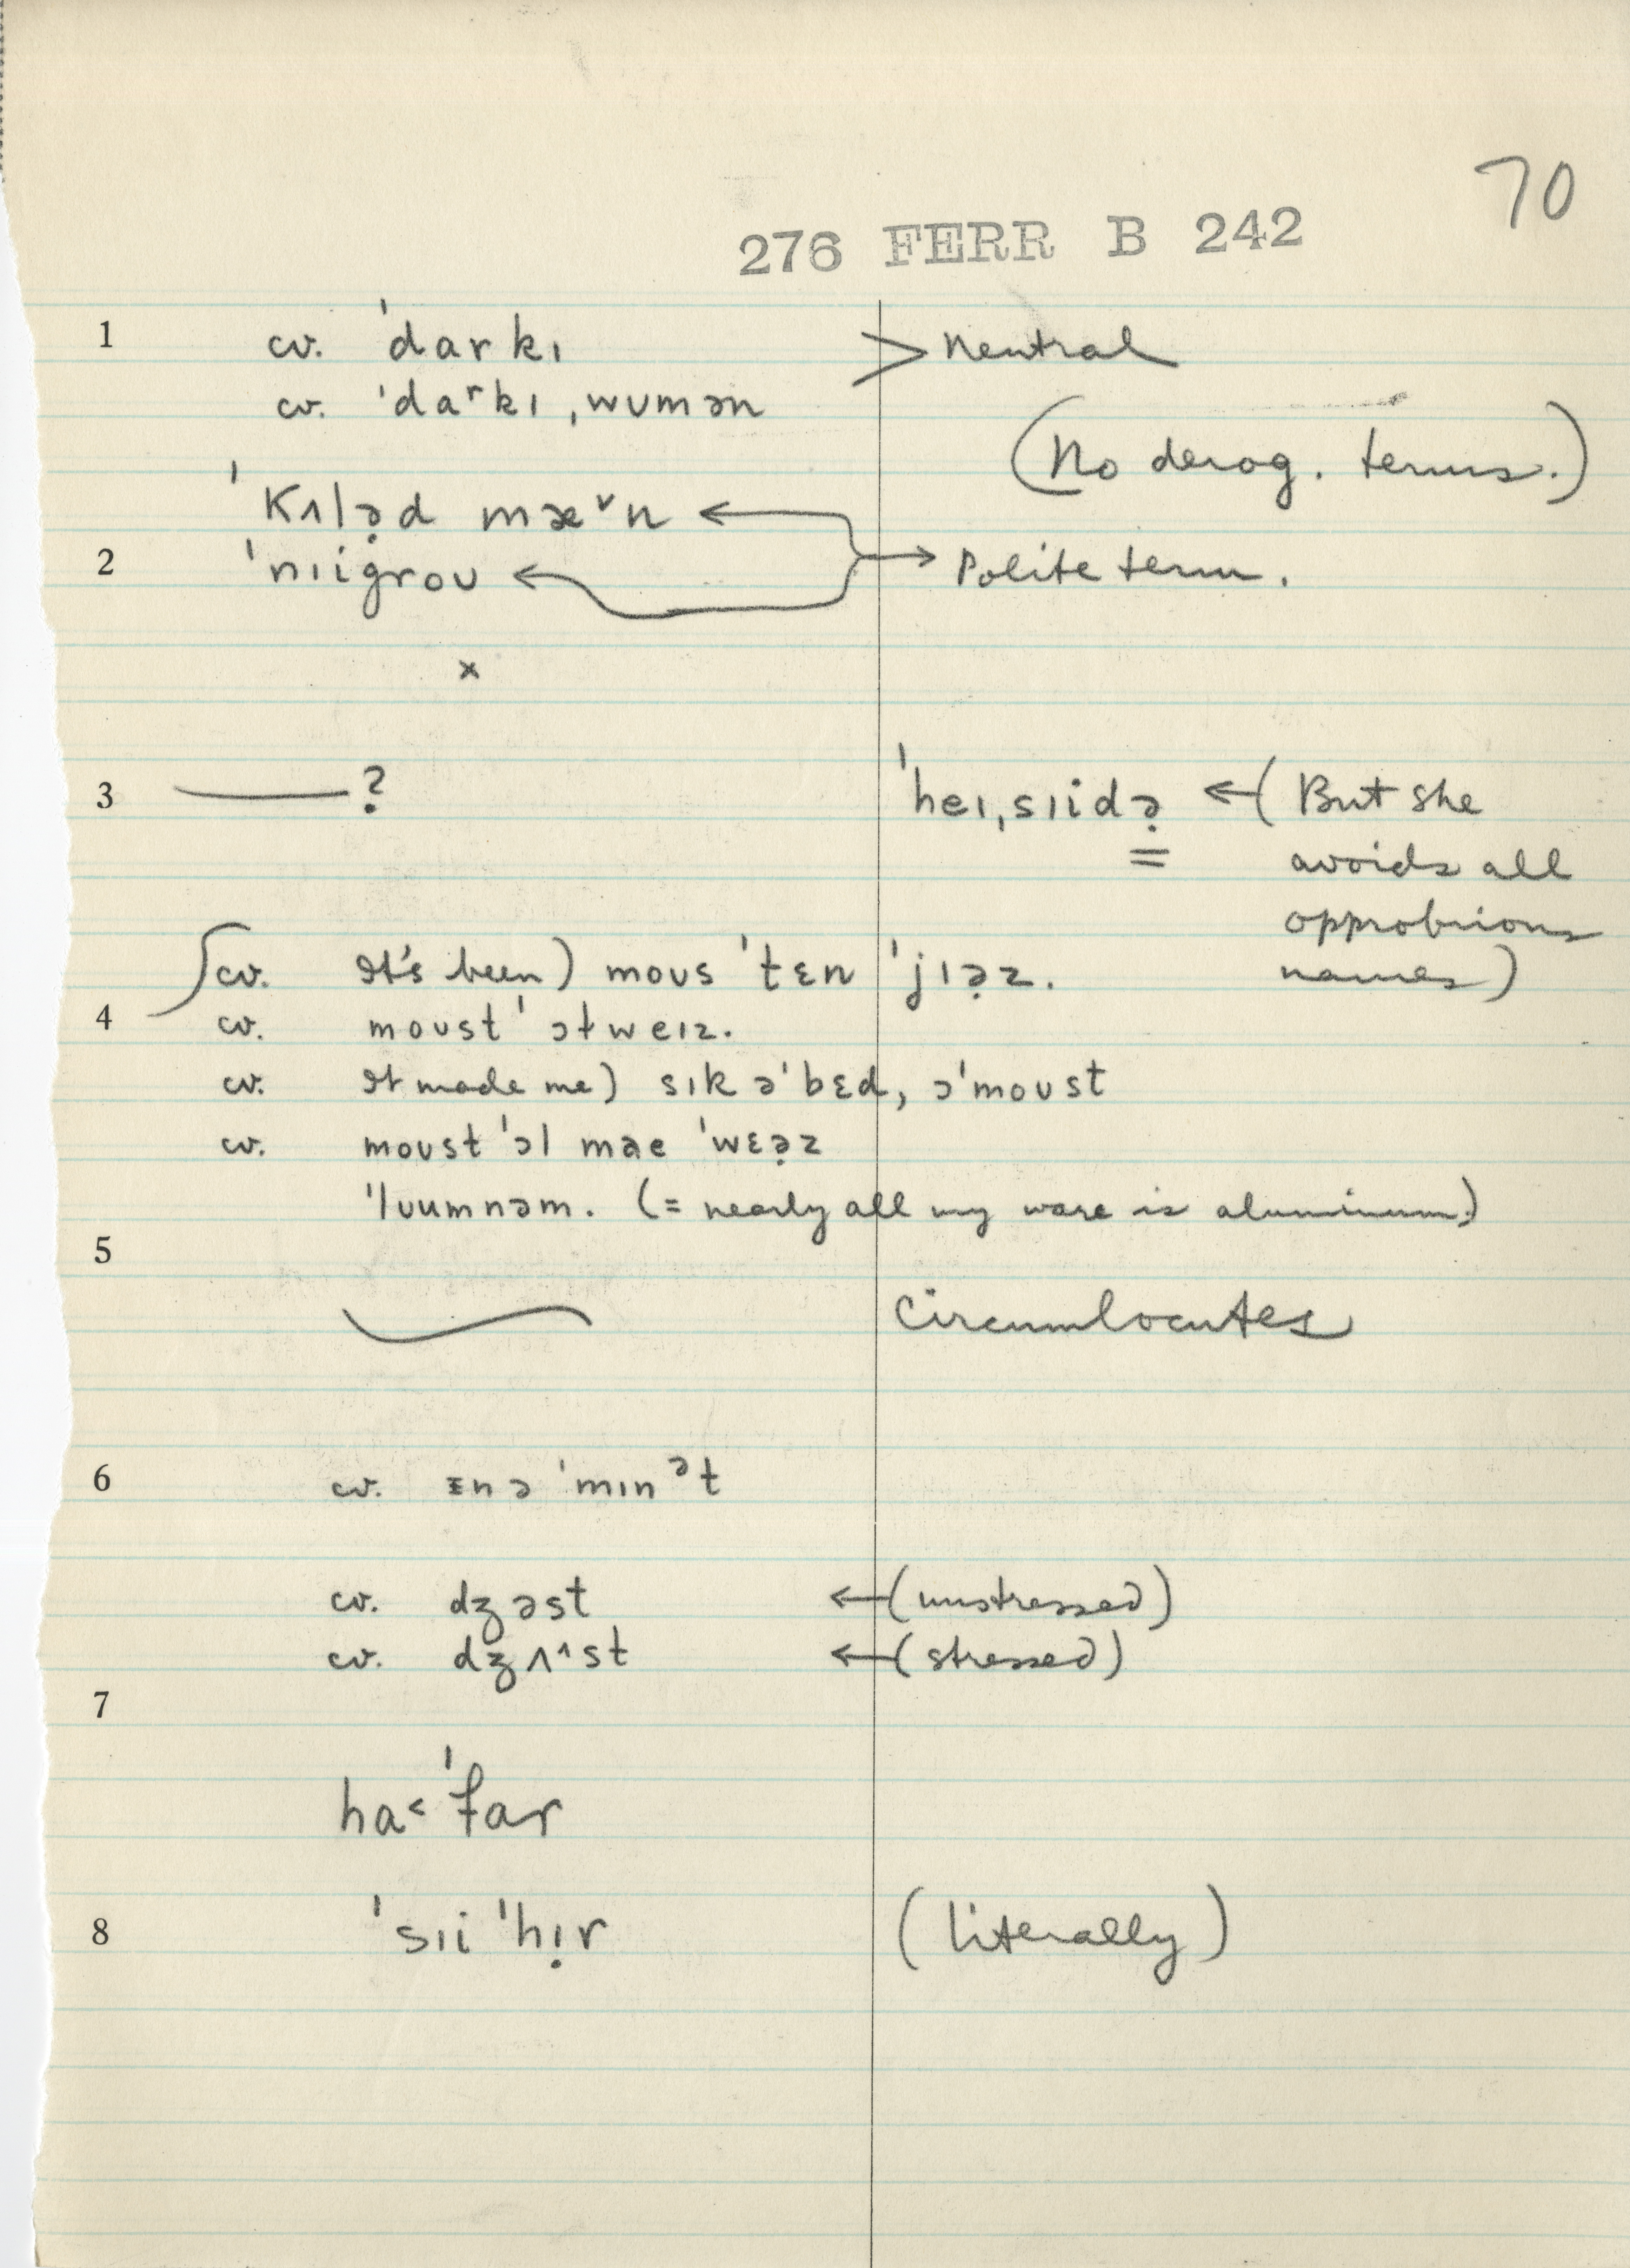 70
276 FERR B 242
1 cv. ˈdarkɪ > neutral
cv. ˈdaʳkɪ ˌwumən
(No derog. terms.)
ˈkʌlə̣d mæ˅n ←
2 ˈnɪigroʊ ← → Polite term.
x
3 ——? ˈheɪˌsɪidə̣ ← (But she
avoids all
opprobrious
names)
cv. It's been) moʊs ˈtɛn ˈjɪə̣z.
4 cv. moʊst ˈɔtweɪz.
cv. It made me) sɪk əˈbɛd, ɔˈmoʊst
cv. moʊst ˈɔl mae ˈwɛə̣z
ˈlʊumnəm. (= nearly all my ware is aluminum.)
5
circumlocutes
6 cv. ɪn ə ˈmɪnᵊt
cv. dʒəst ← (unstressed)
cv. dʒʌ^st ← (stressed)
7
ha˂ ˈfar
8 ˈsɪi ˈhɪ̣r (literally)